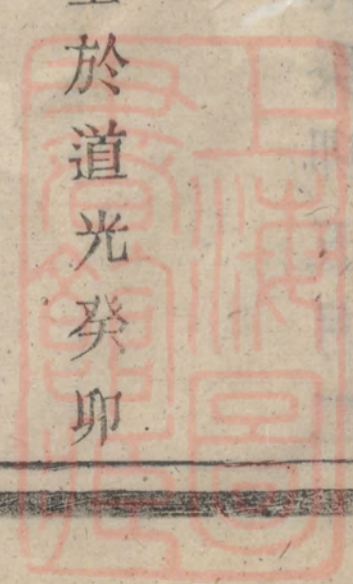 於道光癸卯
上海圖
書館藏